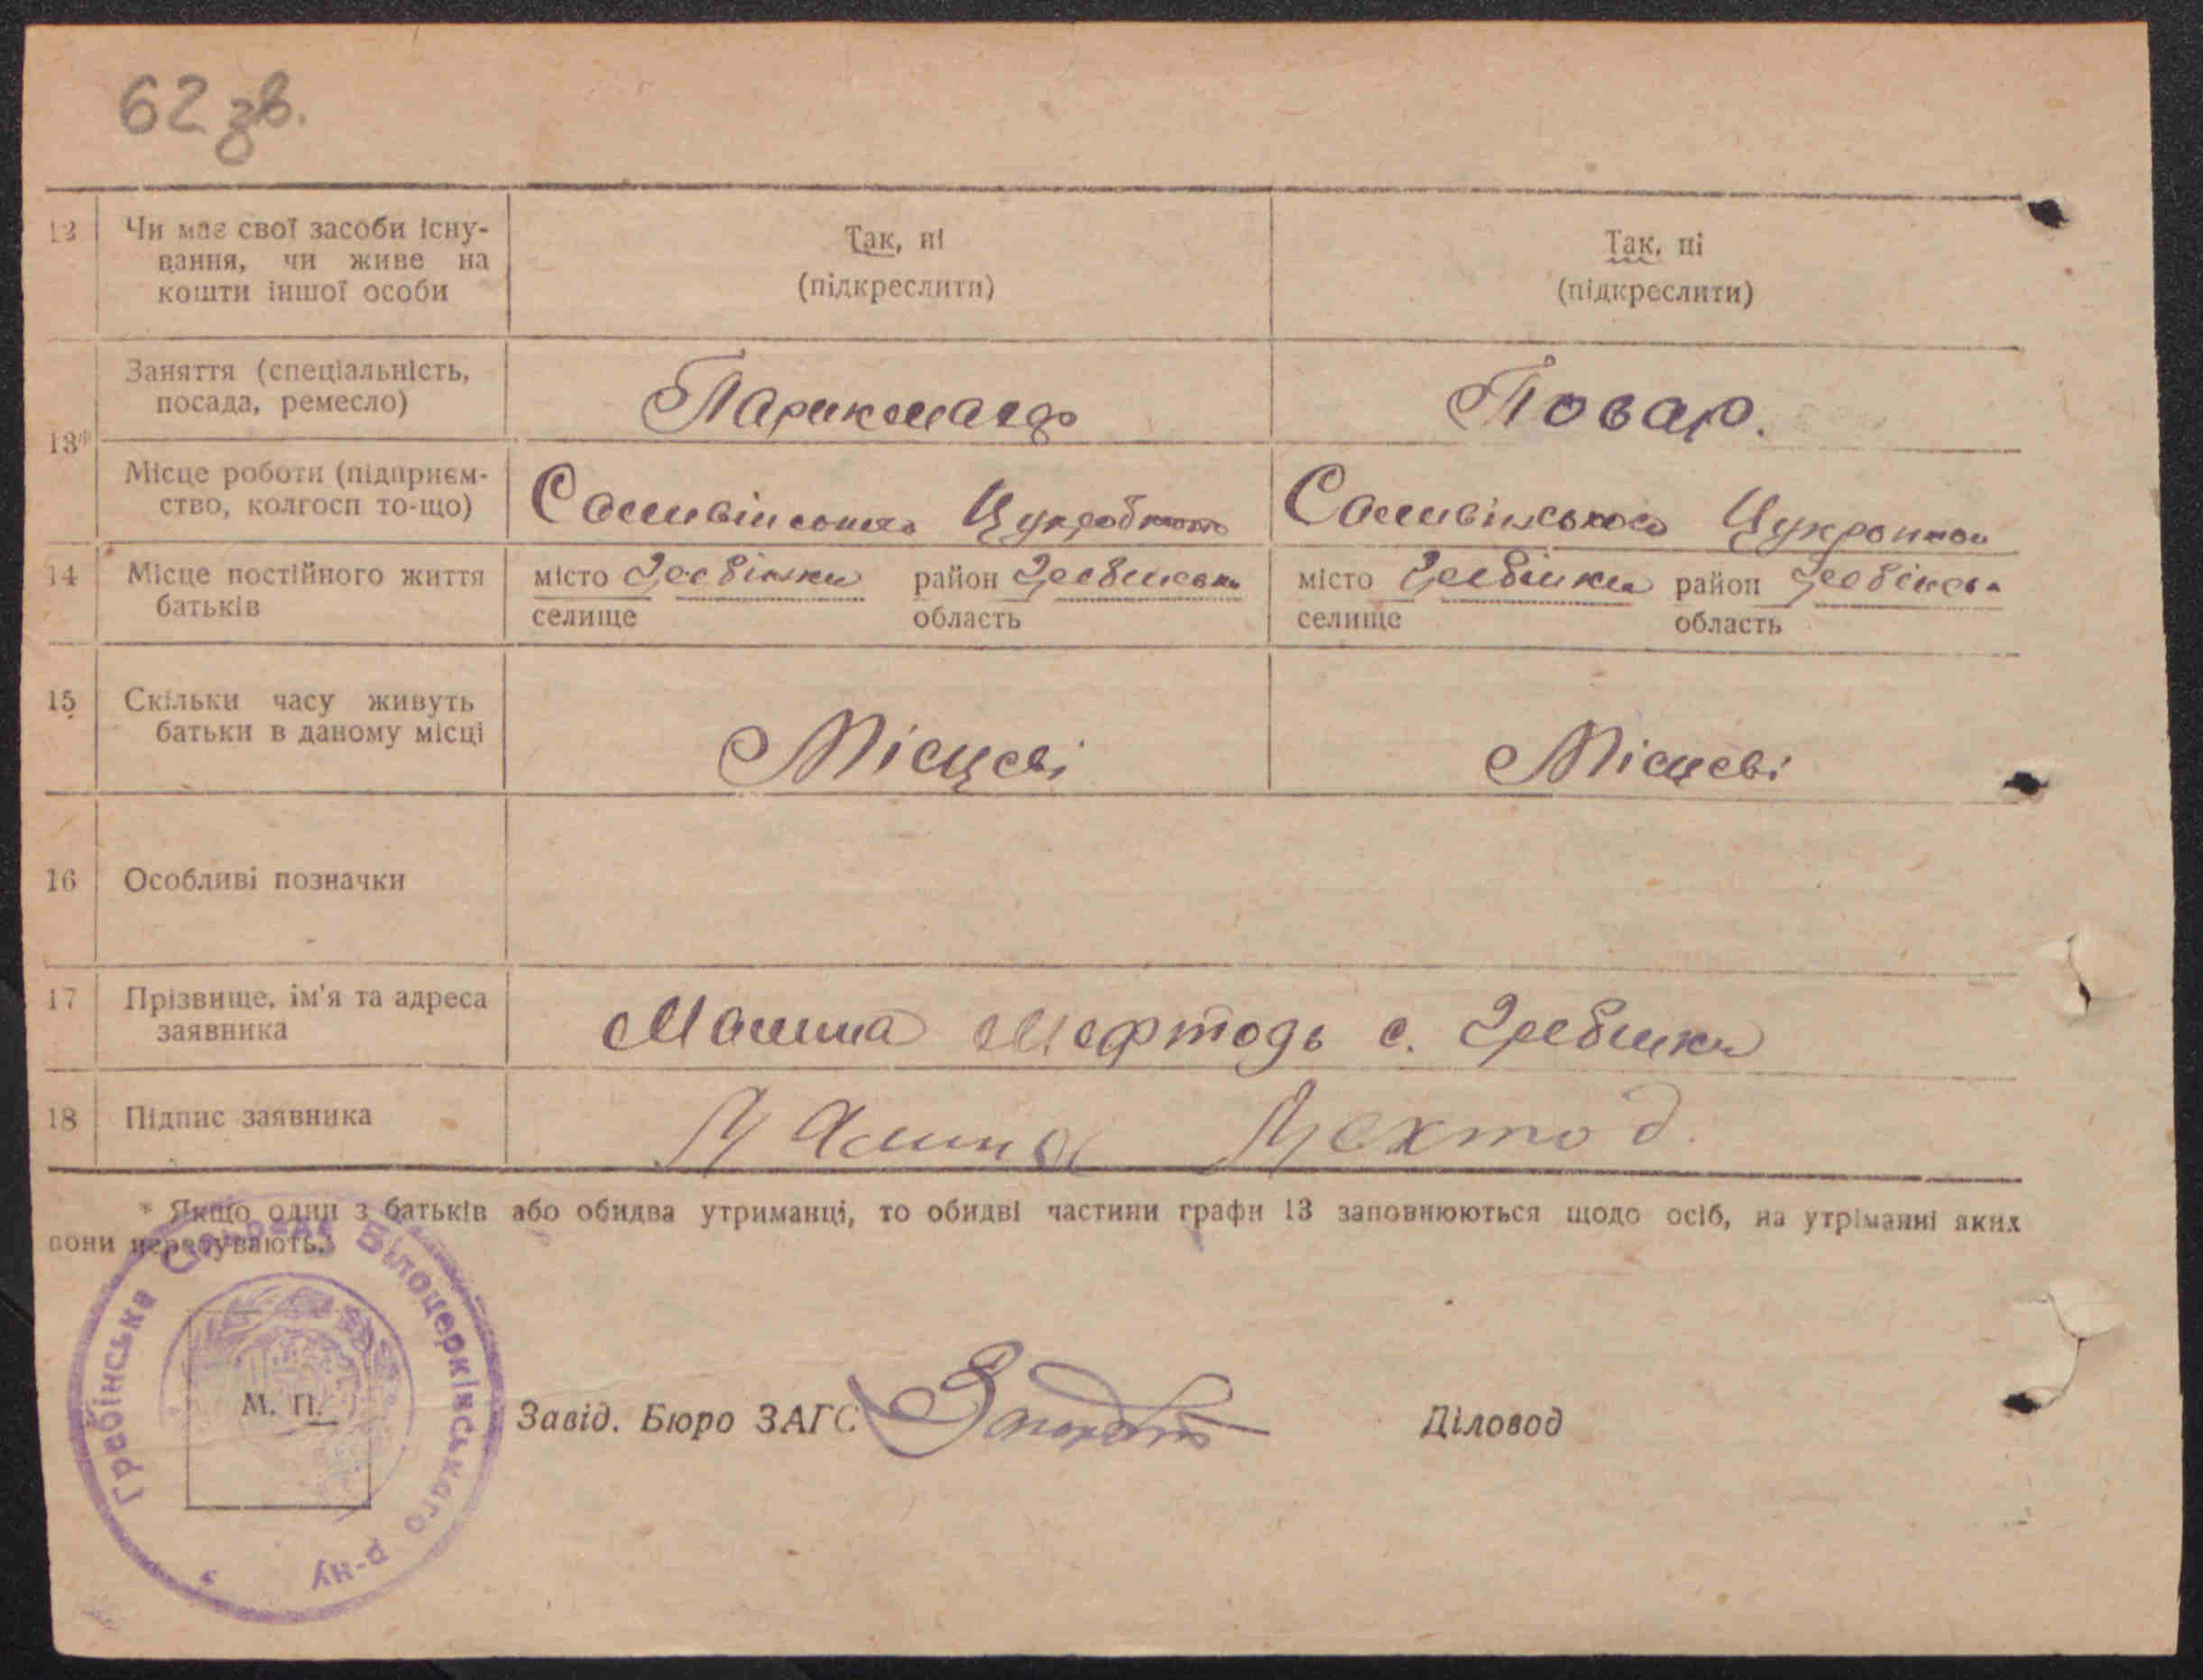 62 зв.
12 Чи має свої засоби існу- Так, ні Так, ні
вання, чи живе на (підкреслити) (підкреслити)
кошти іншої особи
13* Заняття (спеціальність, Парикмахр Повар.
посада, ремесло)
Місце роботи (підприєм-
ство, колгосп то-що)
14 Місце постійного життя місто Гребінки район місто Гребінки район
батьків селище область селище область
15 Скільки часу живуть Місцеві Місцеві
батьки в даному місці
16 Особливі позначки
17 Прізвище, ім'я та адреса с. Гребінки
заявника
18 Підпис заявника
* Якщо один з батьків або обидва утриманці, то обидві частини графи 13 заповнюються щодо осіб, на утріманні яких
вони перебувають.
Гребінська Сільрада Білоцерківського р-ну
М. П. Завід. Бюро ЗАГС Діловод